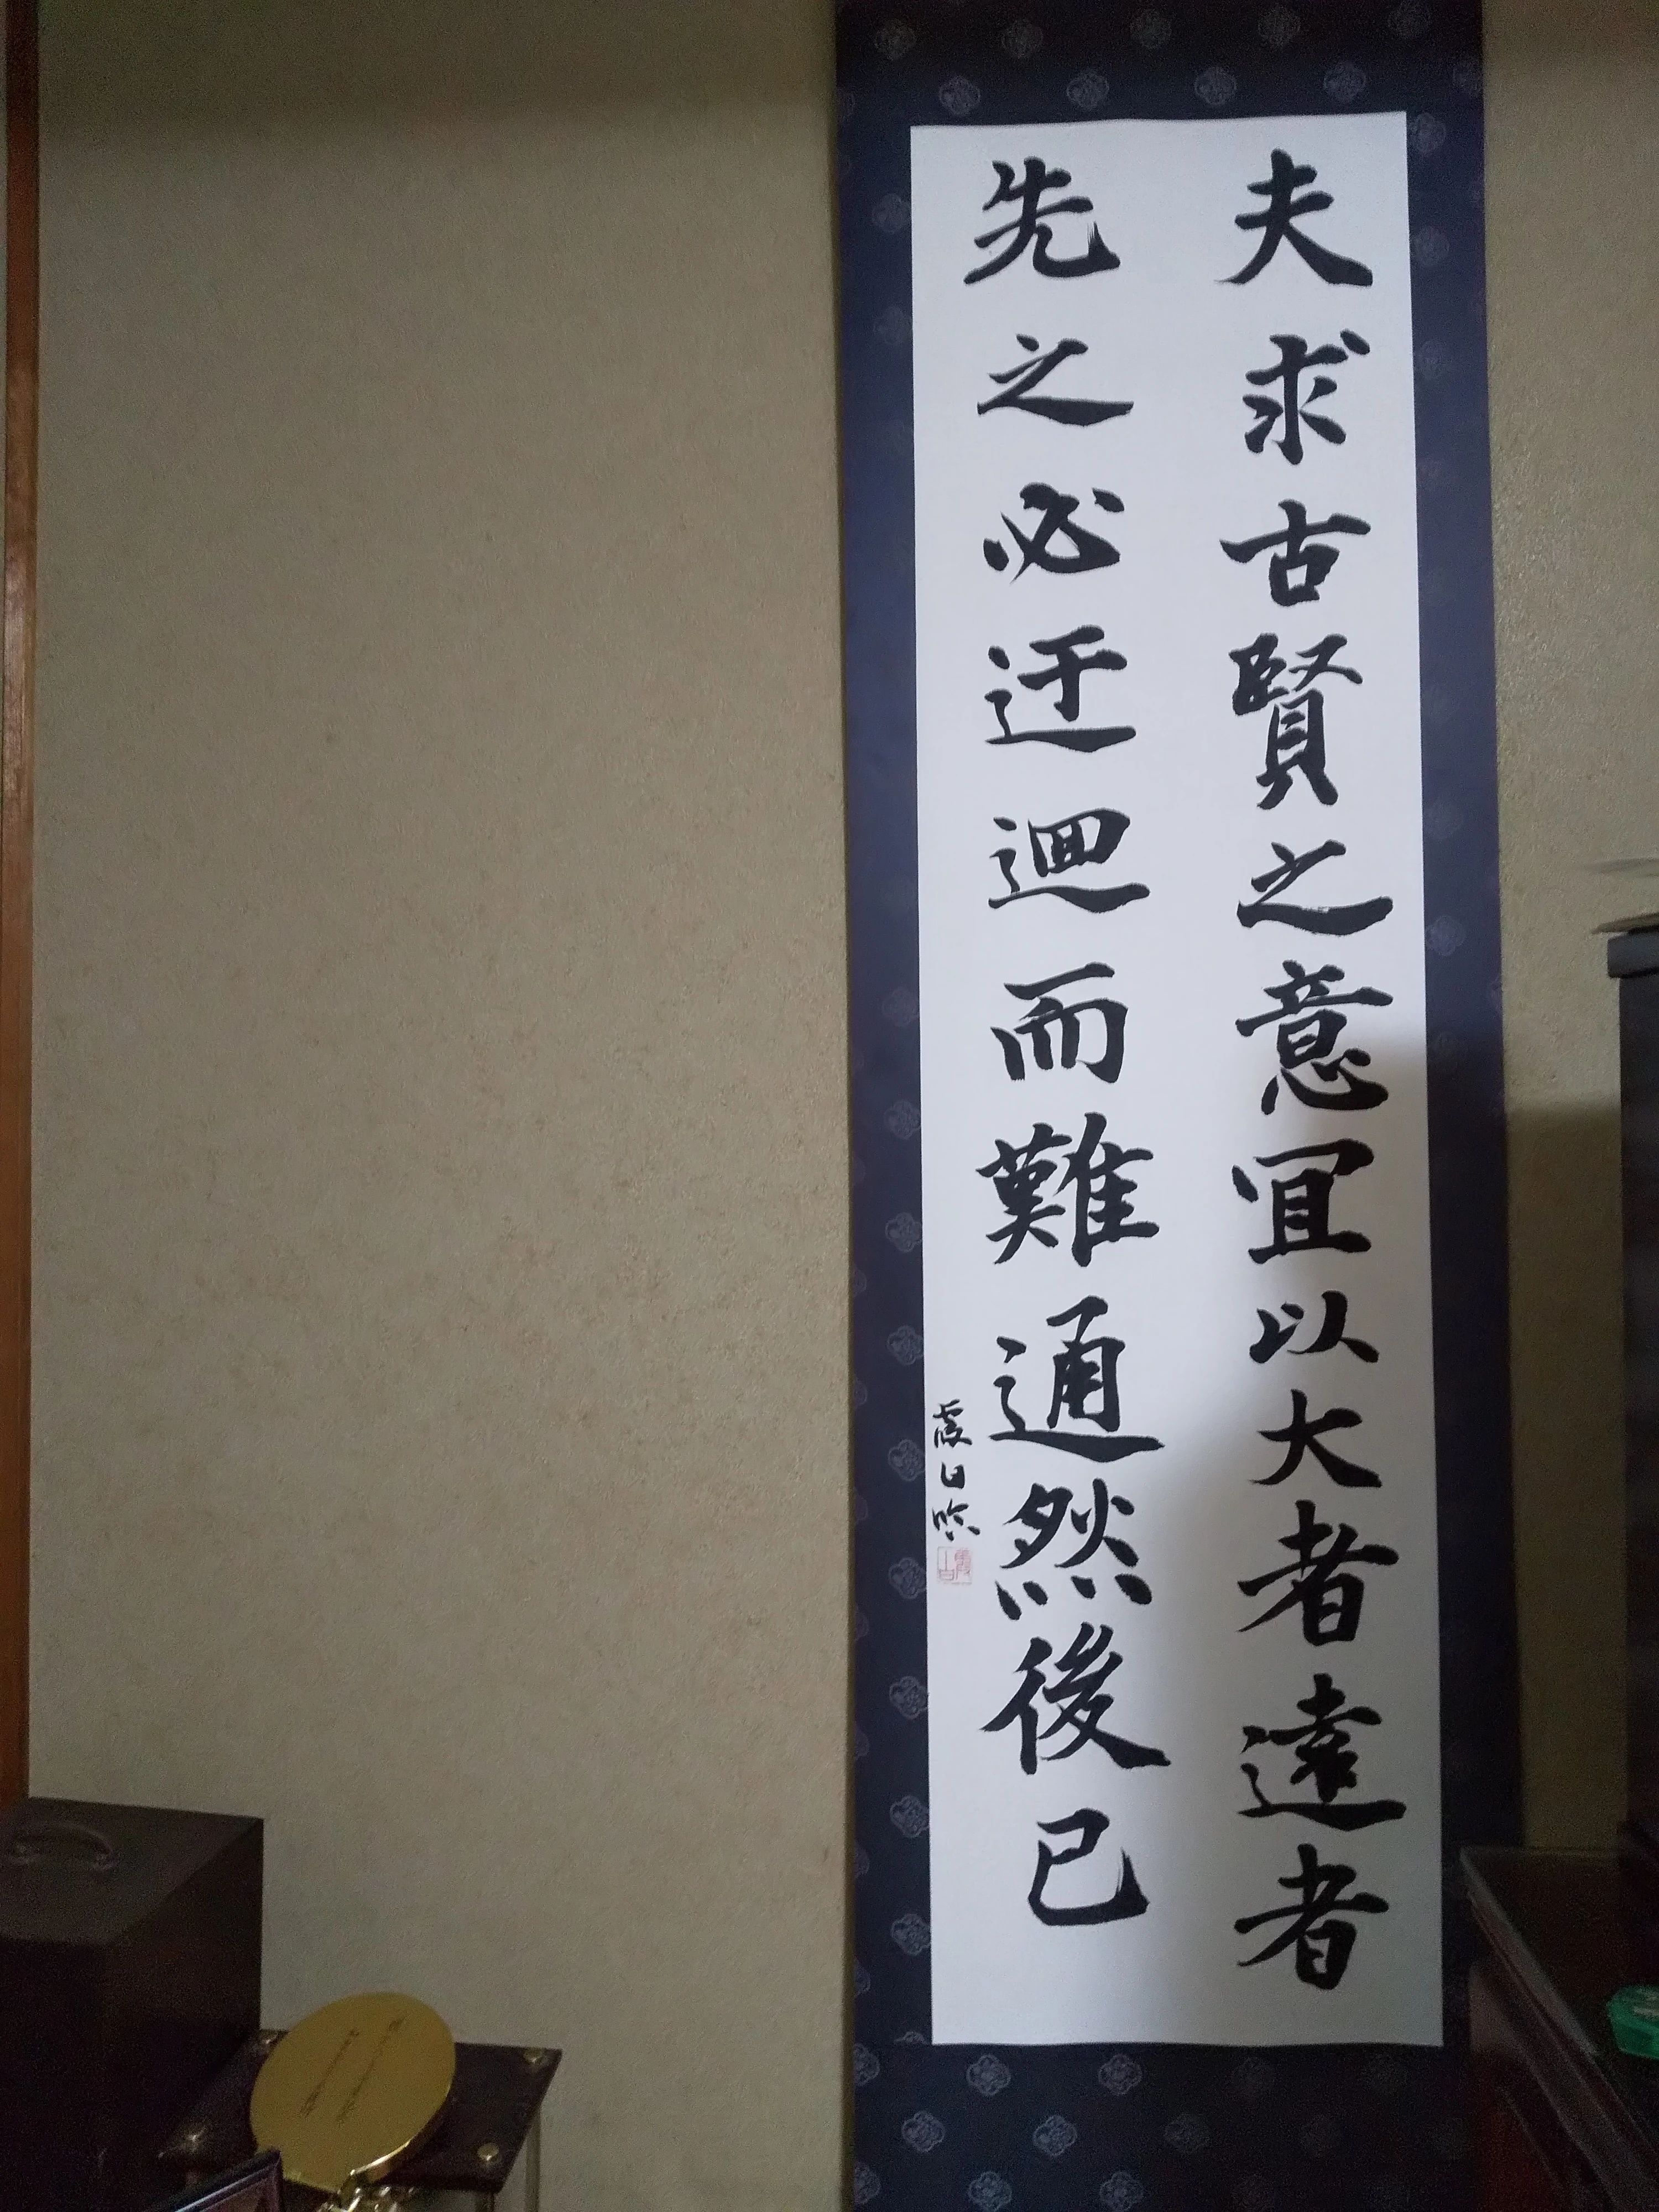 夫求古賢之意冝以大者遠者
先之必迂迴而難通然後已